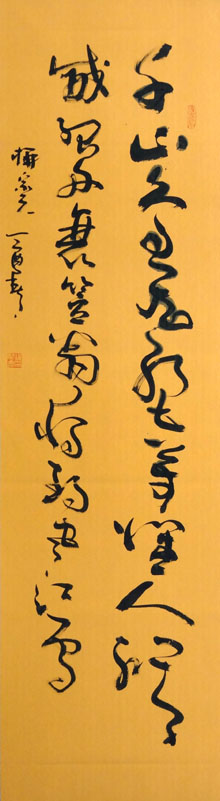 千山鳥飛絕萬徑人蹤
滅孤舟蓑笠翁獨釣寒江雪
柳宗元